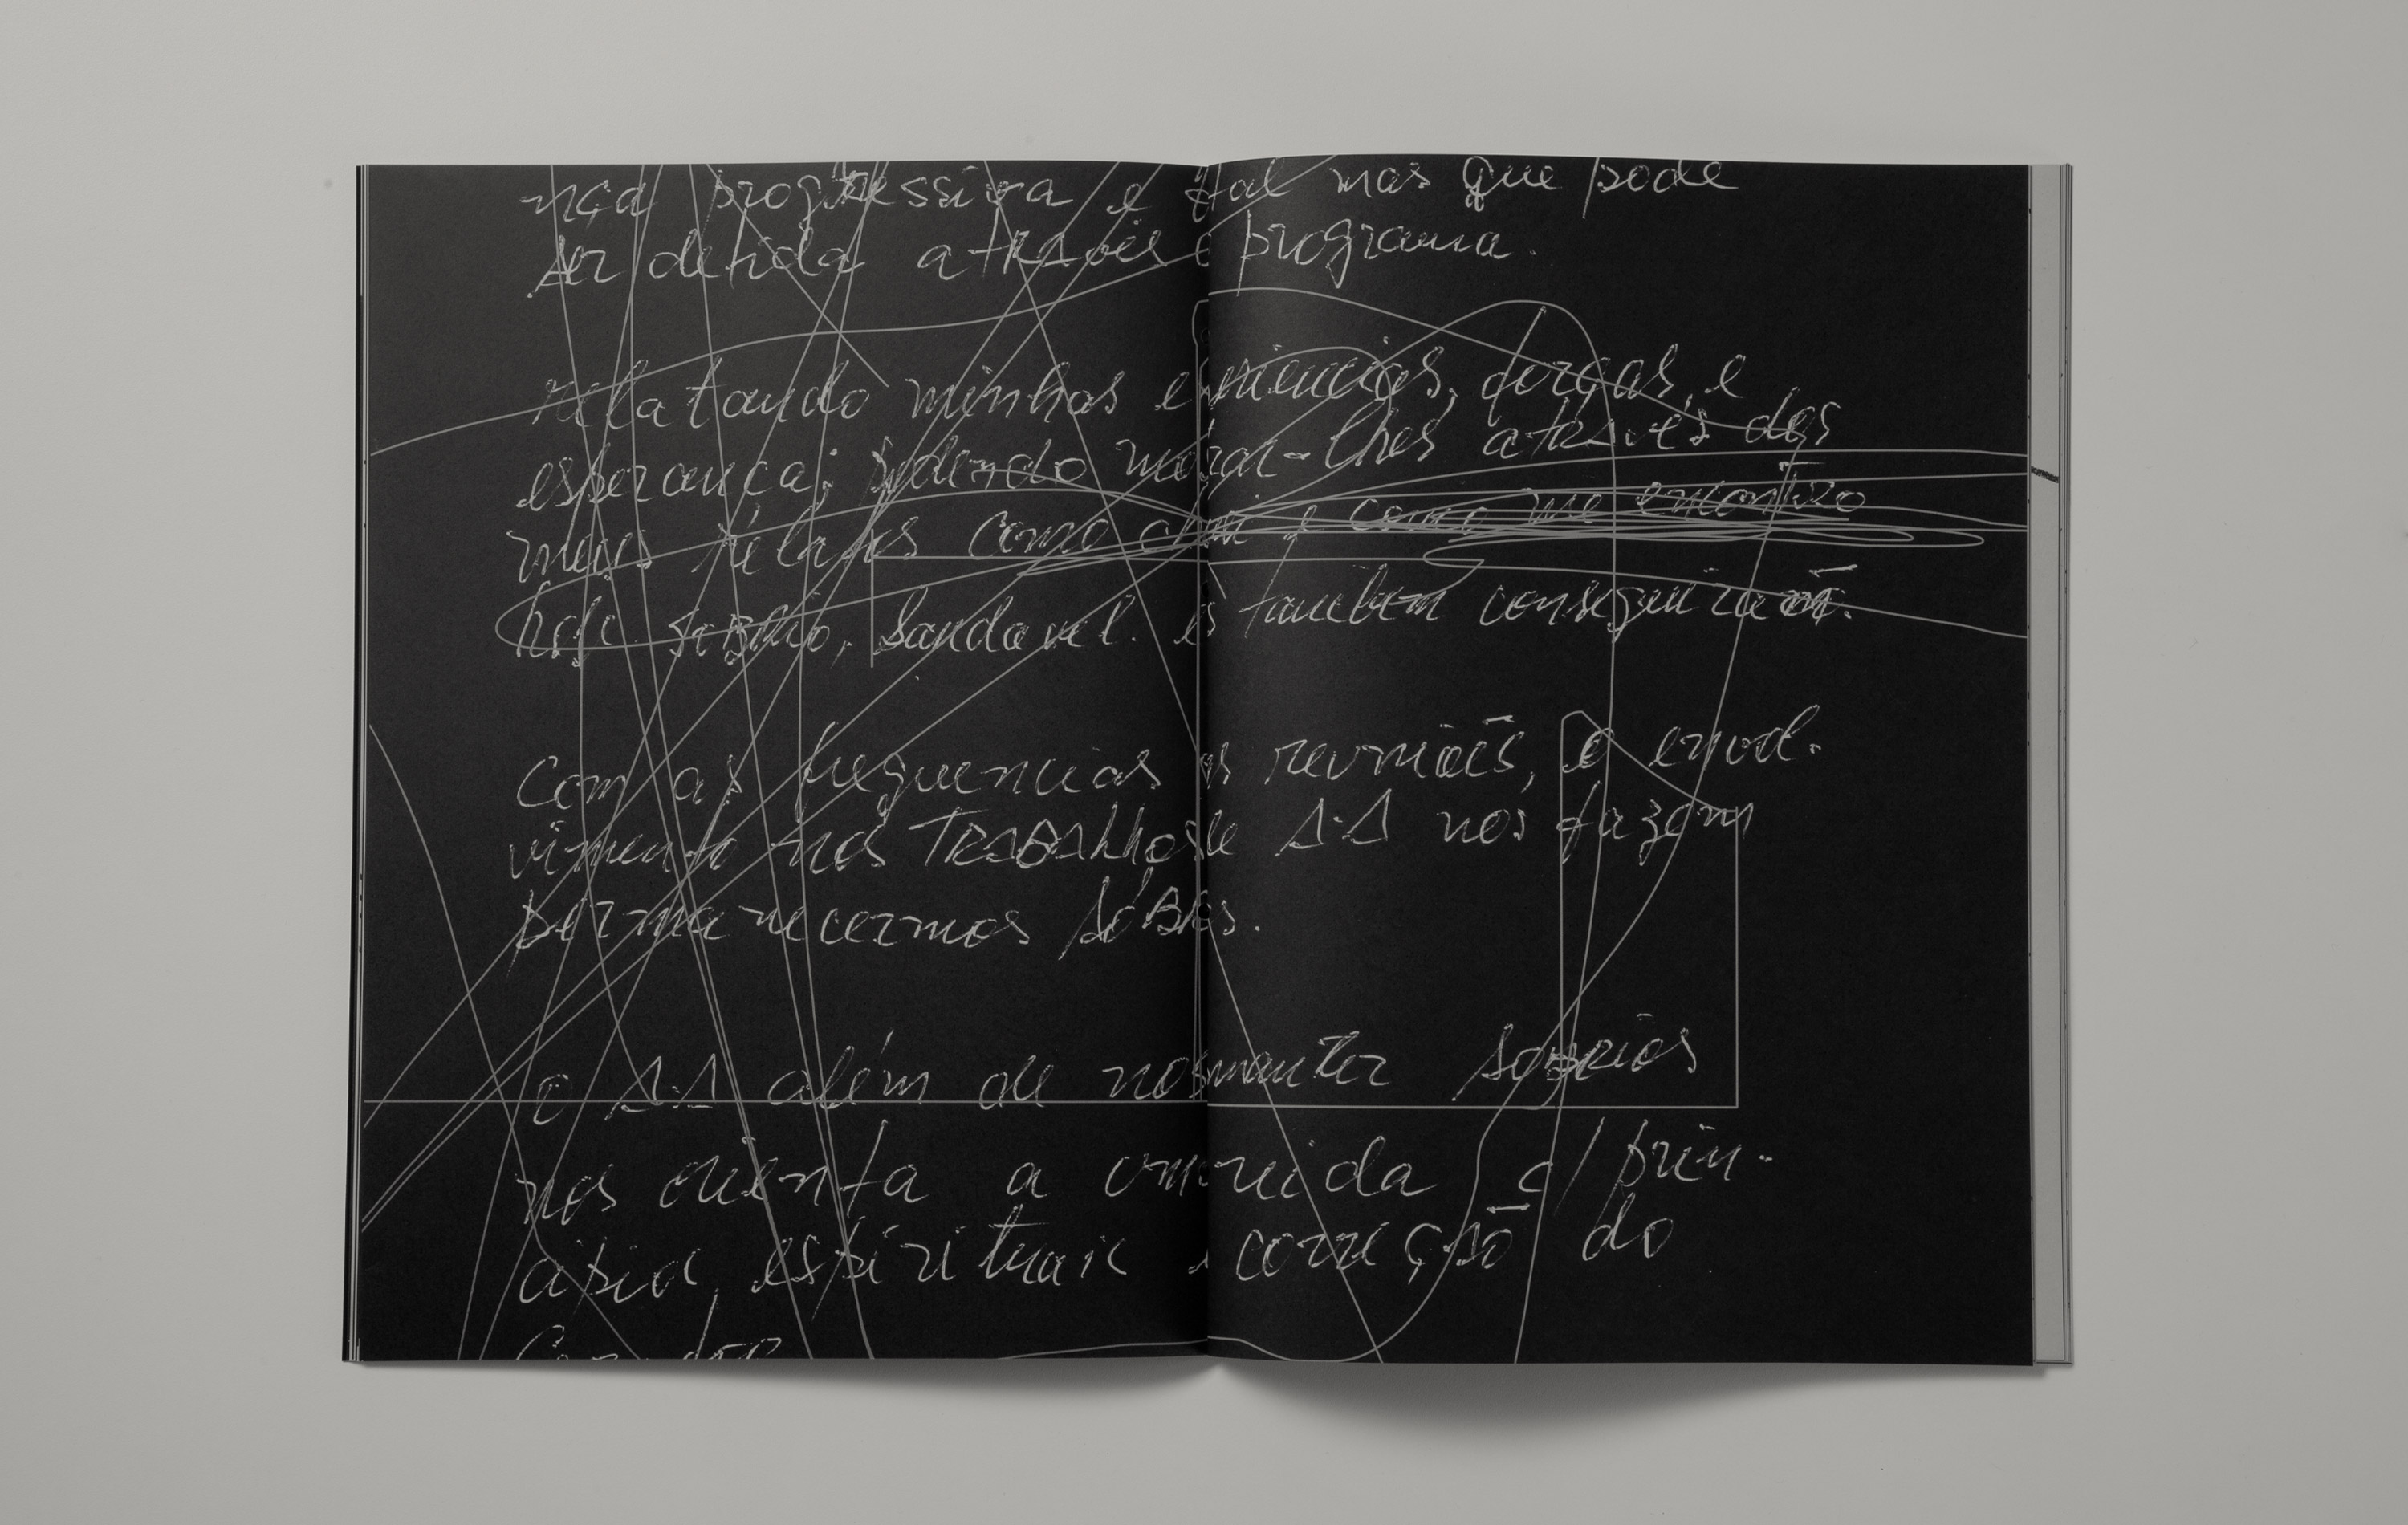 nça progressiva e fatal mas que pode
ser detida através o programa.
relatando minhas eriencias, forças, e
esperança; podendo motrar-lhes através dos
meus relatos como e como me encontro
hoje sobrio, saudavel. es tambem conseguirão.
Com as frequencias as reuniões, e envol-
vimento nos TRABALhos de A.A nos fazem
permanecermos sóBrios.
o A.A além de nos manter soBrios
nos orienta a uma vida c/ prin-
cipios espirituais e correção do